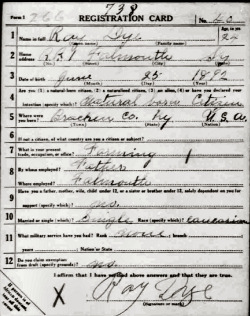 738
Form 1 REGISTRATION CARD No. 40
Age, in yrs.
1 Name in full Ray Dye 22
(Given name) (Family name)
2 Home address R.R.1 Falmouth Ky
3 Date of birth June 25 1892
(Month) (Day) (Year)
4 Are you (1) a natural-born citizen, (2) a naturalized citizen, (3) an alien, (4) or have you declared your
intention (specify which)? Natural born Citizen
5 Where were you born? Bracken Co. Ky. U.S.A.
(Town) (State) (Nation)
6 If not a citizen, of what country are you a citizen or subject?
7 What is your present trade, occupation, or office? Farming
8 By whom employed? Father
Where employed? Falmouth
9 Have you a father, mother, wife, child under 12, or a sister or brother under 12, solely dependent on you for
support (specify which)? no.
10 Married or single (which)? Single Race (specify which)? Caucasian
11 What military service have you had? Rank none branch
years Nation or State
12 Do you claim exemption from draft (specify grounds)? no.
I affirm that I have verified above answers and that they are true.
X Ray Dye
(Signature or mark)